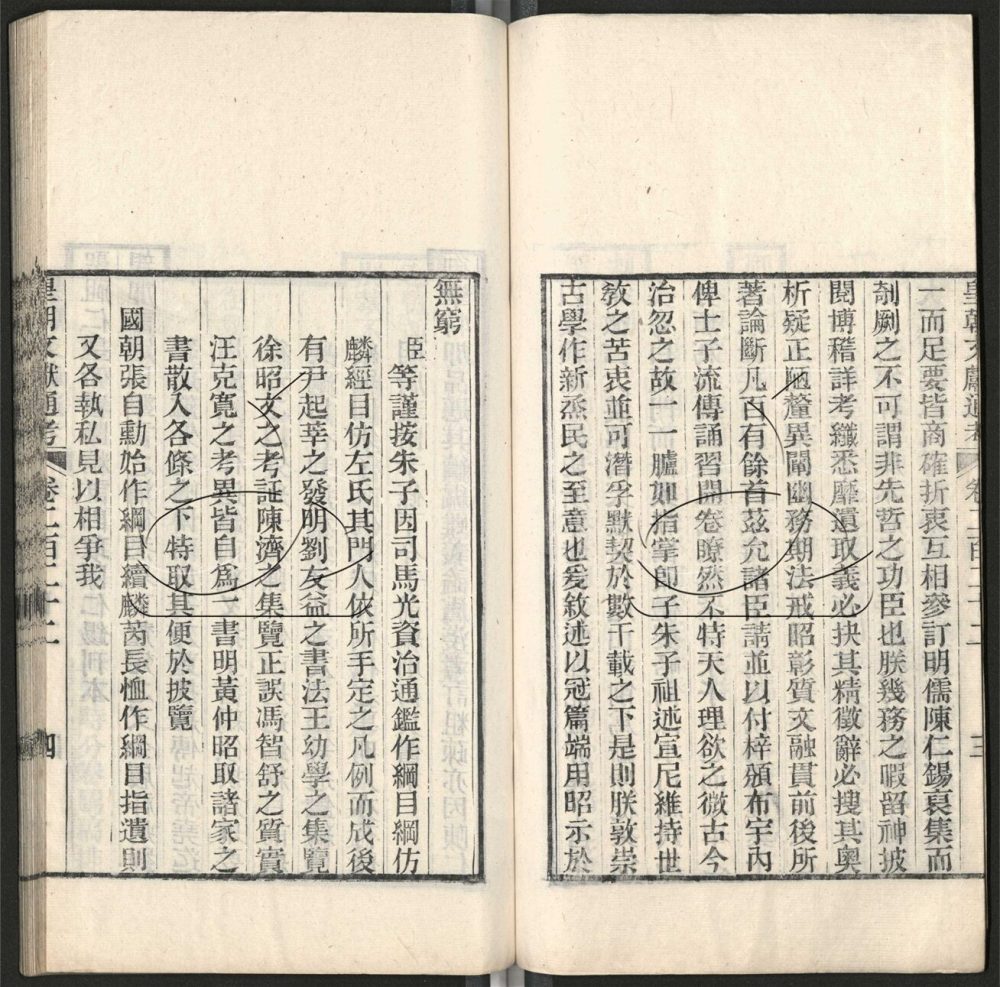 皇朝文獻通考 卷二百二十二 三
一而足要皆商確折衷互相參訂明儒陳仁錫裒集而
剞劂之不可謂非先哲之功臣也朕幾務之暇留神披
閱博稽詳考纖悉靡遺取義必抉其精徵辭必搜其奧
析疑正陋釐異闡幽務期法戒昭彰質文融貫前後所
著論斷凡百有餘首茲允諸臣請並以付梓頒布宇內
俾士子流傳誦習開卷瞭然不特天人理欲之微古今
治忽之故一一臚如指掌卽子朱子祖述宣尼維持世
敎之苦衷並可潛孚默契於數千載之下是則朕敦崇
古學作新烝民之至意也爰敘述以冠篇端用昭示於
無窮
臣等謹按朱子因司馬光資治通鑑作綱目綱仿
麟經目仿左氏其門人依所手定之凡例而成後
有尹起莘之發明劉友益之書法王幼學之集覽
徐昭文之考証陳濟之集覽正誤馮智舒之質實
汪克寬之考異皆自爲一書明黃仲昭取諸家之
書散入各條之下特取其便於披覽
國朝張自勳始作綱目續麟芮長恤作綱目指遺則
又各執私見以相爭我
皇朝文獻通考 卷二百二十二 四